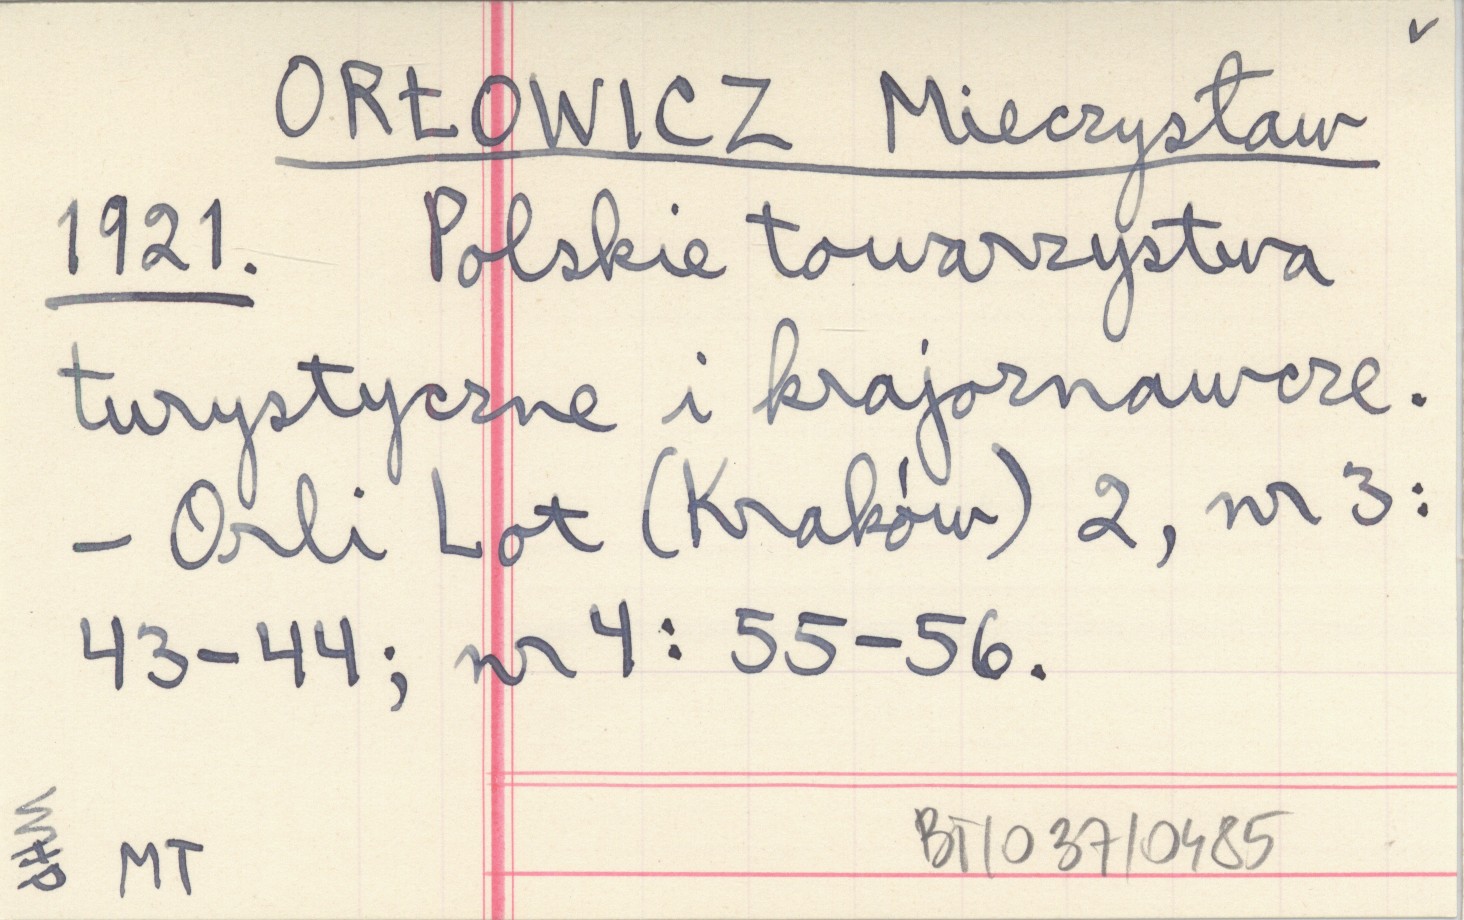 ORŁOWICZ Mieczysław
1921. Polskie towarzystwa
turystyczne i krajoznawcze.
– Orli Lot (Kraków) 2, nr 3:
43–44; nr 4: 55–56.
MT
BT/037/0485